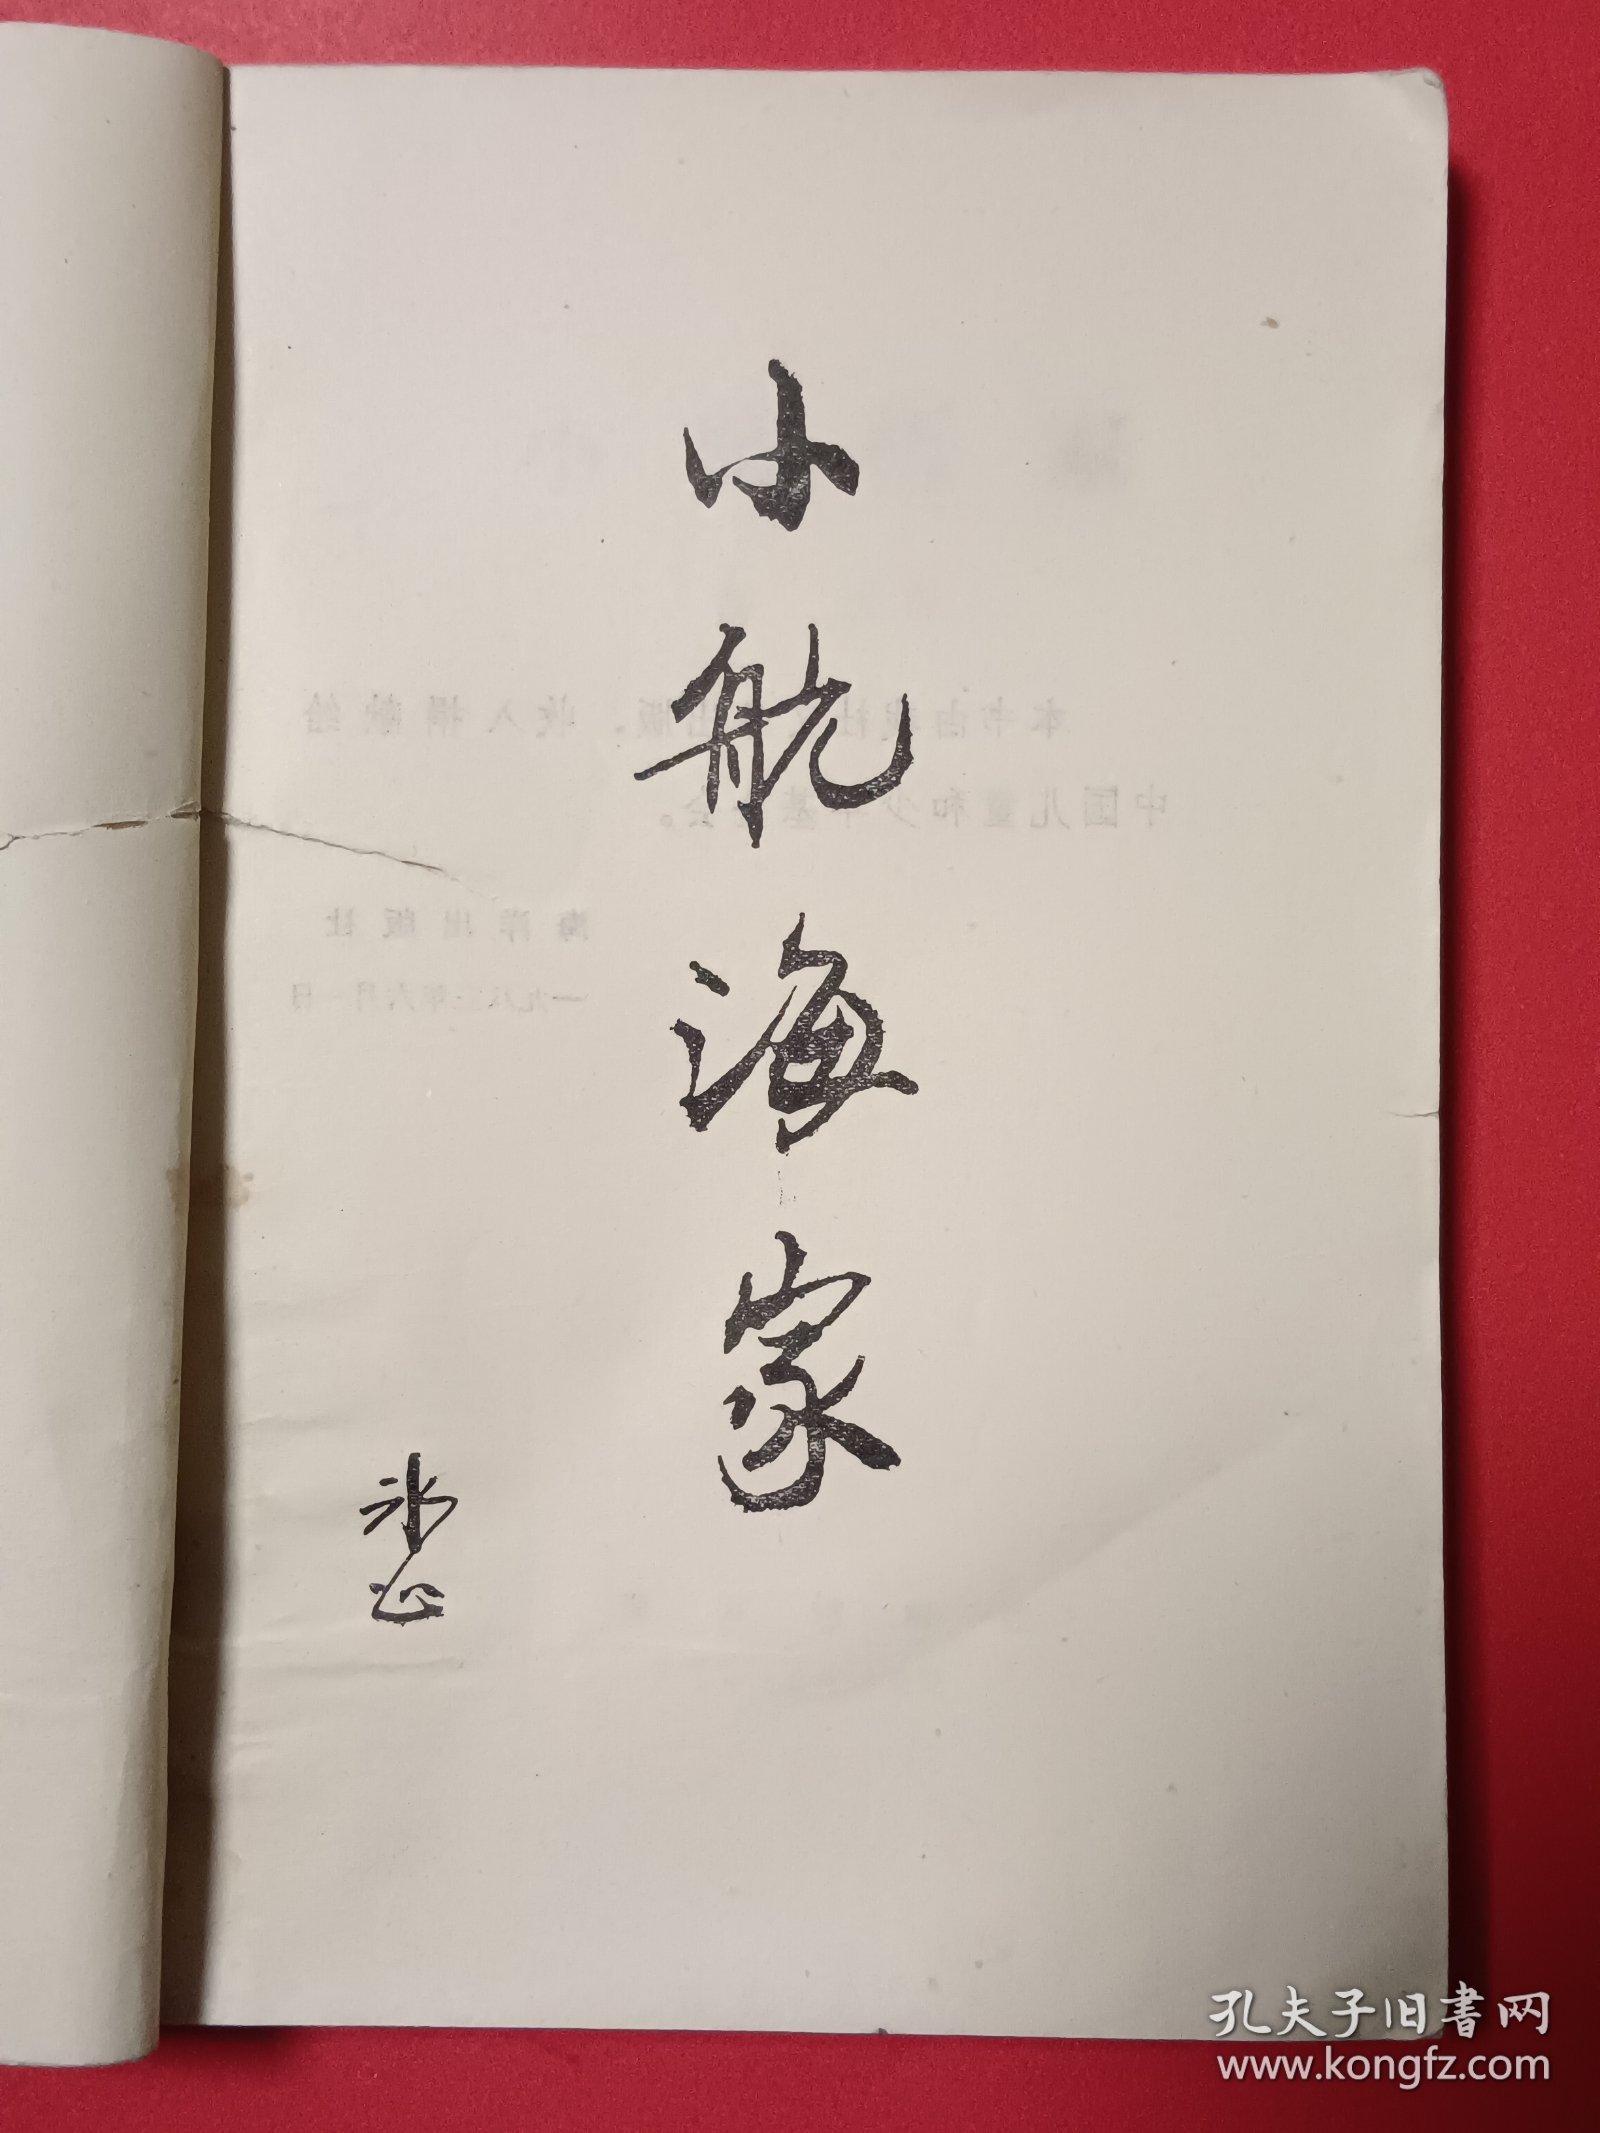 小航海家
冰心
本书由我社 出版，收入捐献给
中国儿童和少年基 会。
海洋出版社
一九八三年六月一日
孔夫子旧書网
www.kongfz.com